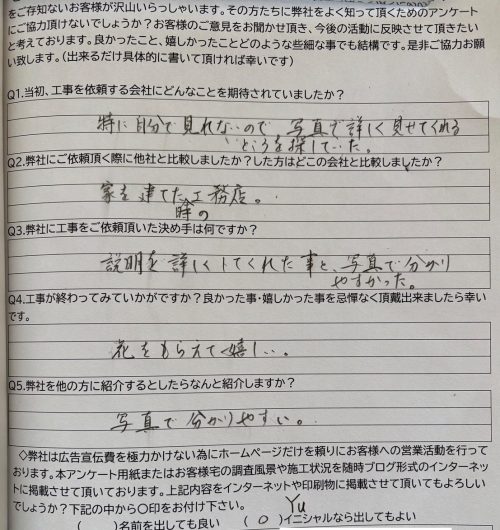 をご存知ないお客様が沢山いらっしゃいます。その方たちに弊社をよく知って頂くためのアンケート
にご協力頂けないでしょうか？お客様のご意見をお聞かせ頂き、今後の活動に反映させて頂きたい
と考えております。良かったこと、嬉しかったことどのような些細な事でも結構です。是非ご協力お願
い致します。（出来るだけ具体的に書いて頂ければ幸いです）
Q1.当初、工事を依頼する会社にどんなことを期待されていましたか？
特に自分で見れないので、写真で詳しく見せてくれる
ところを探していた。
Q2.弊社にご依頼頂く際に他社と比較しましたか？した方はどこの会社と比較しましたか？
家を建てた時の工務店。
Q3.弊社に工事をご依頼頂いた決め手は何ですか？
説明を詳しくしてくれた事と、写真で分かり
やすかった。
Q4.工事が終わってみていかがですか？良かった事・嬉しかった事を忌憚なく頂戴出来ましたら幸い
です。
花をもらえて嬉しい。
Q5.弊社を他の方に紹介するとしたらなんと紹介しますか？
写真で分かりやすい。
◇弊社は広告宣伝費を極力かけない為にホームページだけを頼りにお客様への営業活動を行って
おります。本アンケート用紙またはお客様宅の調査風景や施工状況を随時ブログ形式のインターネッ
トに掲載させて頂いております。上記内容をインターネットや印刷物に掲載させて頂いてもよろしい
でしょうか？下記の中から〇印をお付け下さい。 Yu
（　）名前を出しても良い （ ○ ）イニシャルなら出してもよい